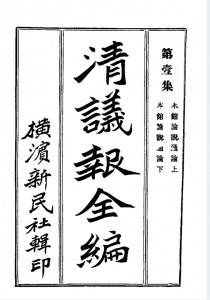 第壹集
本館論說通論上
本館論說通論下
清議報全編
橫濱新民社輯印